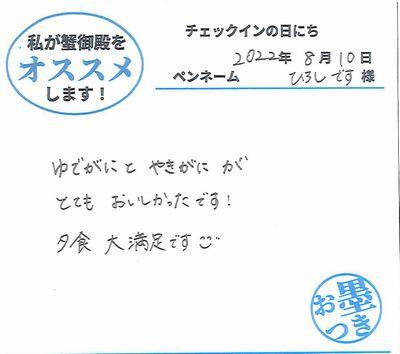 私が蟹御殿を
オススメ
します!
チェックインの日にち
2022年 8月 10日
ペンネーム ひろしです 様
ゆでがにと やきがに が
とても おいしかったです!
夕食 大満足です
お墨つき